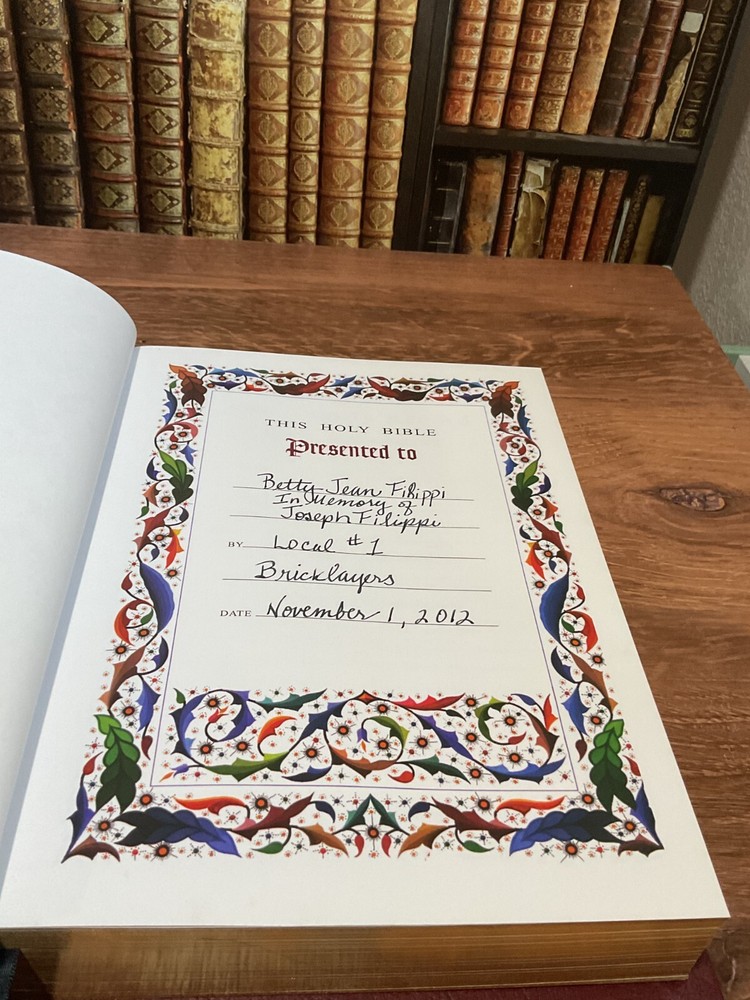 THIS HOLY BIBLE
Presented to
Betty Jean Filippi
In Memory of
Joseph Filippi
BY Local #1
Bricklayers
DATE November 1, 2012